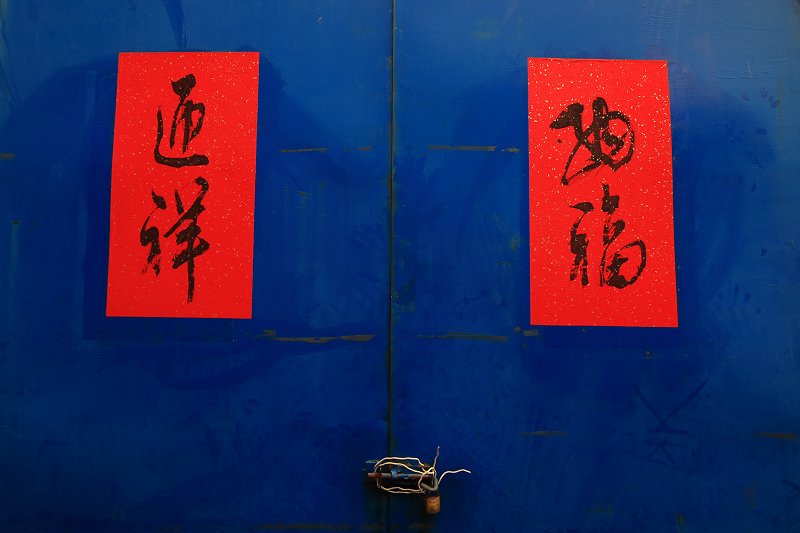 納福
迎祥